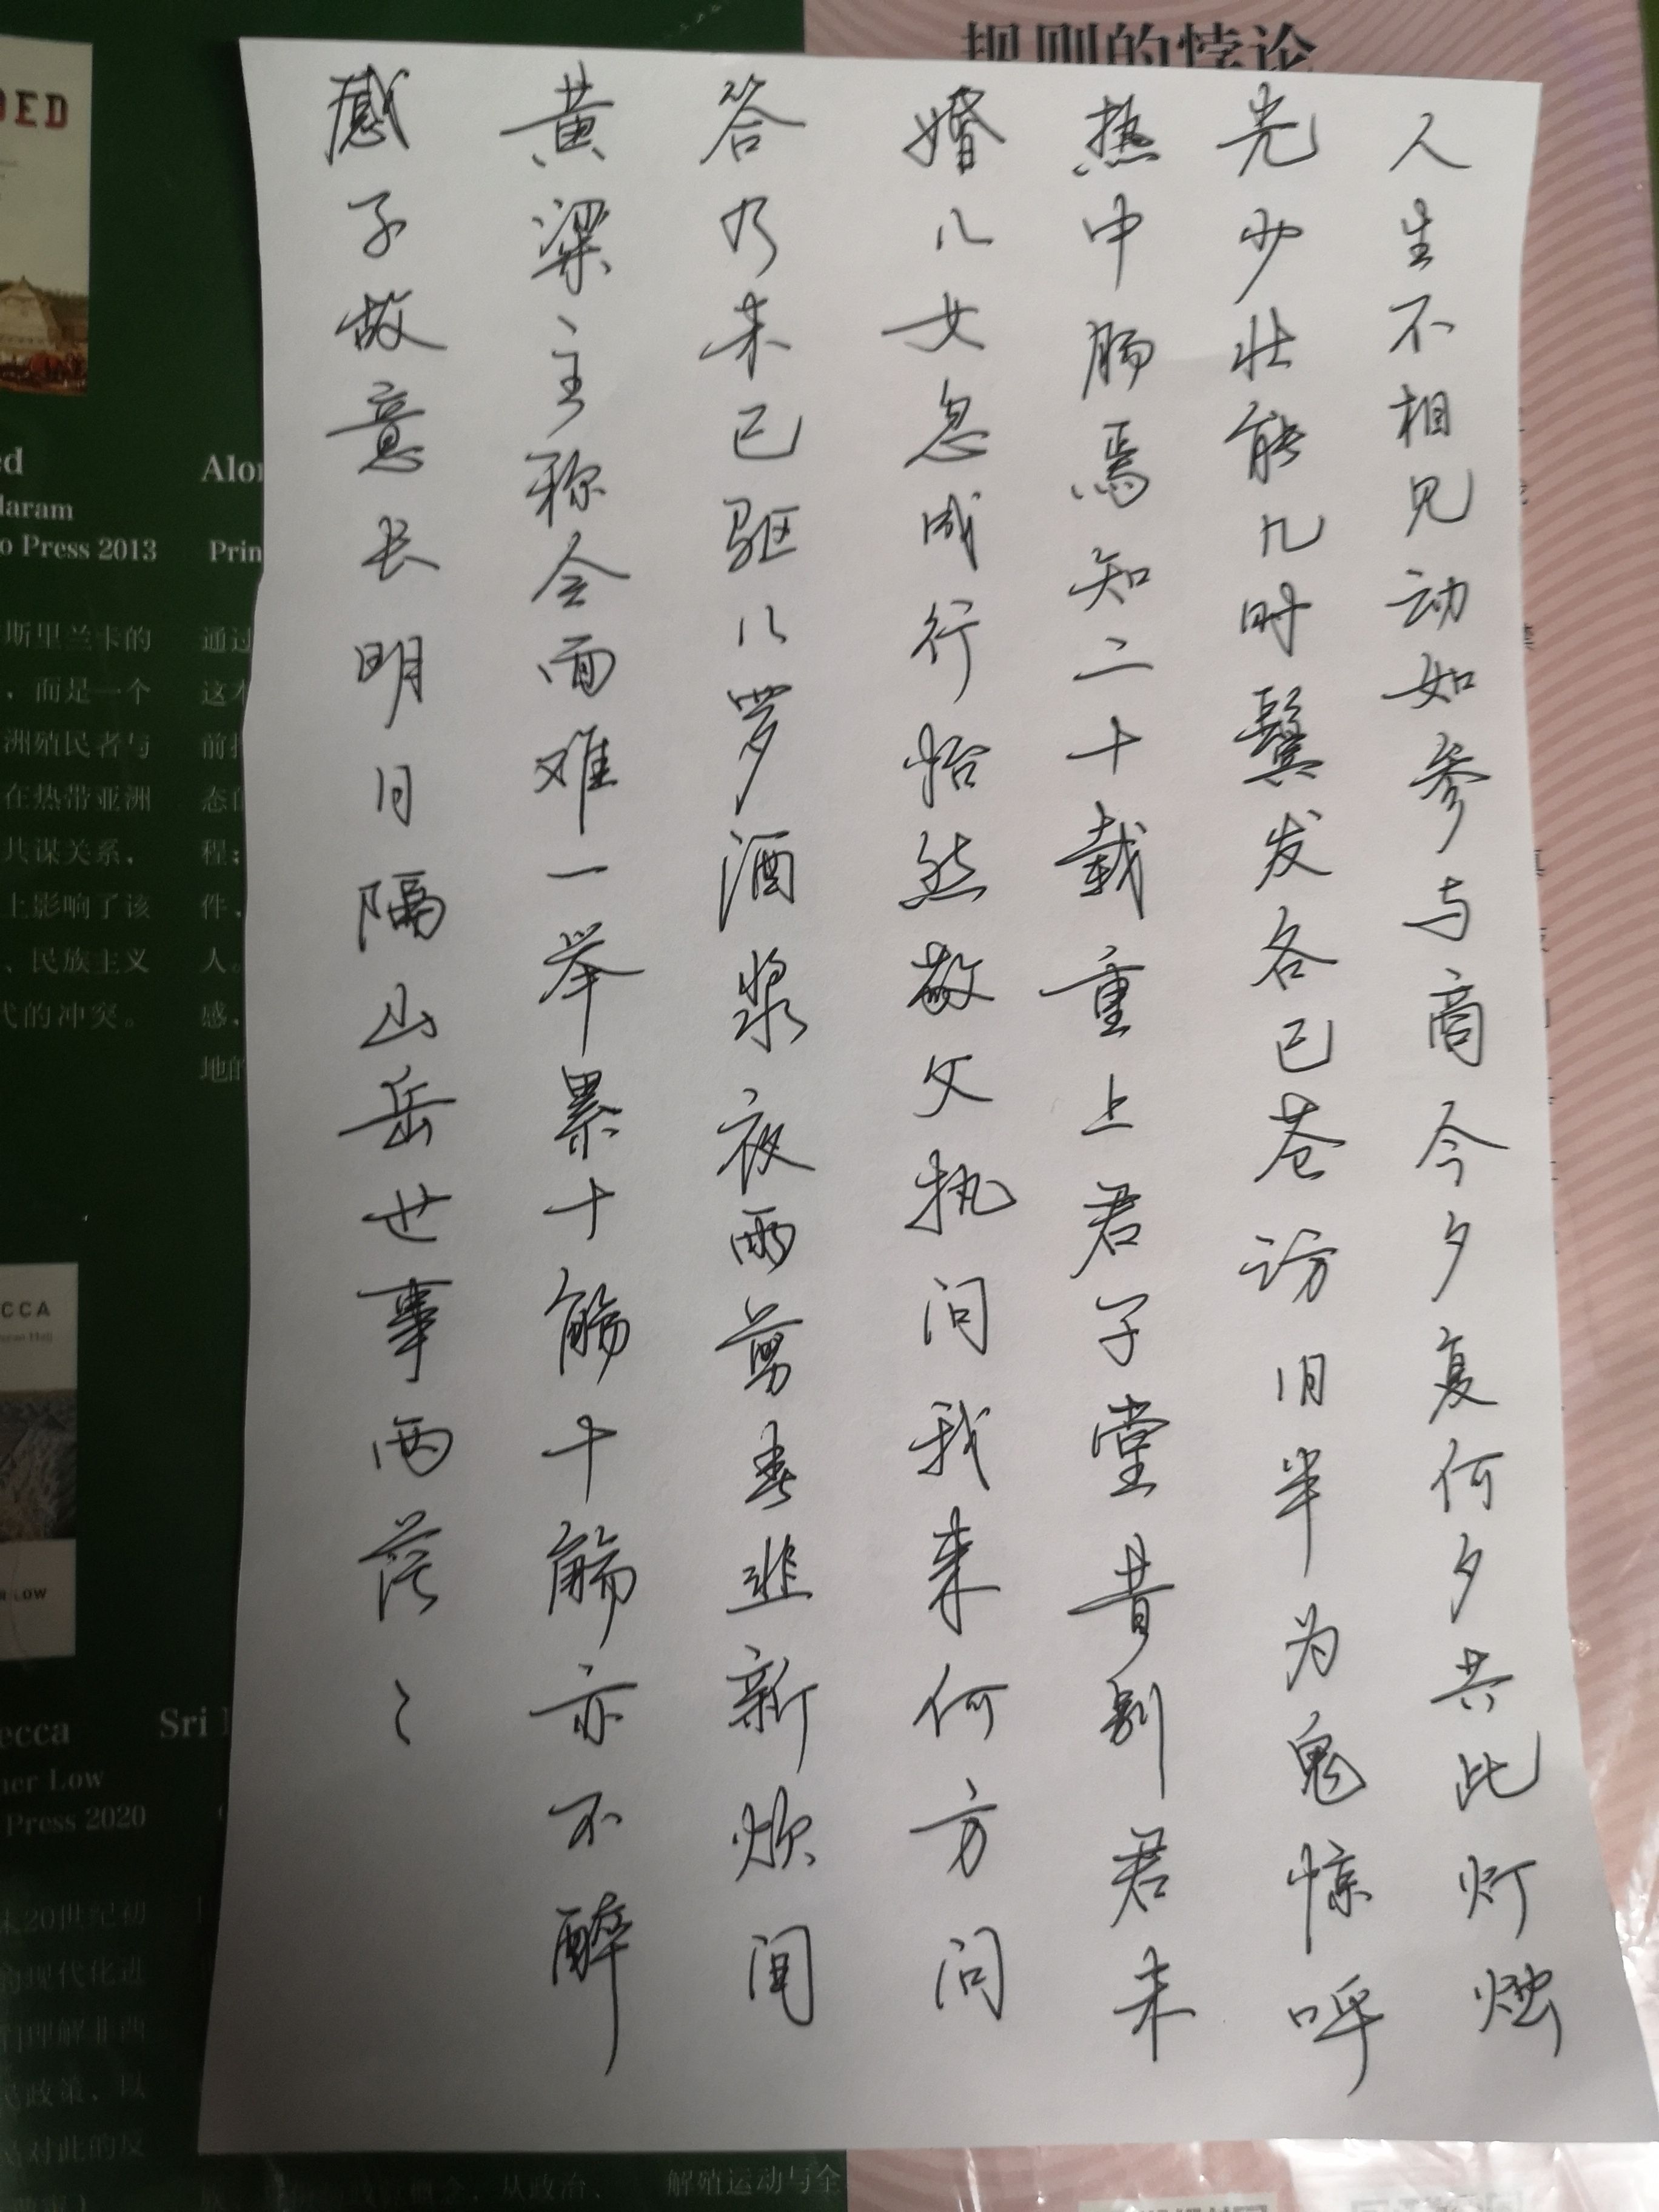 人生不相见动如参与商今夕复何夕共此灯烛
光少壮能几时鬓发各已苍访旧半为鬼惊呼
热中肠焉知二十载重上君子堂昔别君未
婚儿女忽成行怡然敬父执问我来何方问
答乃未已驱儿罗酒浆夜雨剪春韭新炊间
黄粱主称会面难一举累十觞十觞亦不醉
感子故意长明日隔山岳世事两茫々
规则的悖论
DED
ed
laram
o Press 2013
斯里兰卡的
，而是一个
洲殖民者与
在热带亚洲
共谋关系，
上影响了该
、民族主义
代的冲突。
Alon
Prin
通过
这本
前
态
程；
件，
人。
感，
地的
CCA
R LOW
ecca
her Low
Press 2020
Sri
末20世纪初
的现代化进
们理解非西
民政策、以
对此的反
从政治、
解殖运动与全